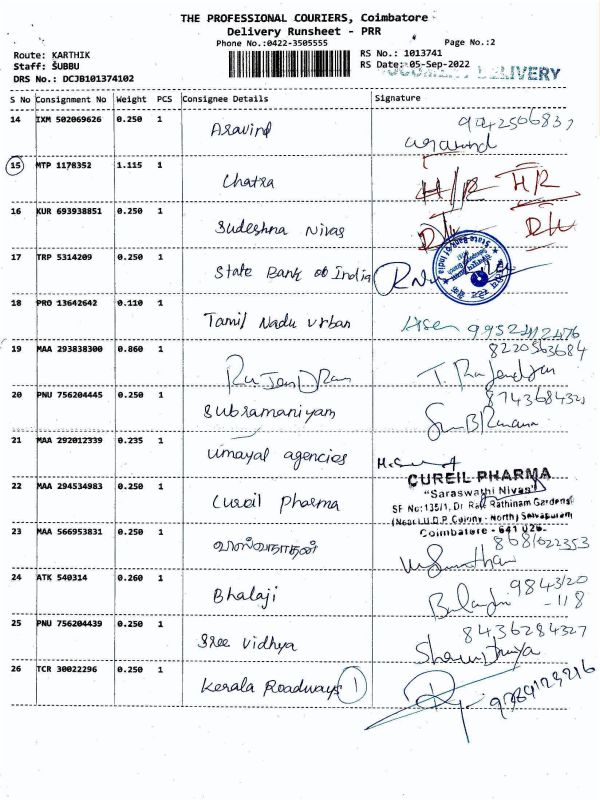 THE PROFESSIONAL COURIERS, Coimbatore
Delivery Runsheet - PRR
Phone No.:0422-3505555 Page No.:2
Route: KARTHIK RS No.: 1013741
Staff: SUBBU RS Date: 05-Sep-2022
DOCUMENT DELIVERY
DRS No.: DCJB101374102
S No Consignment No Weight PCS Consignee Details Signature
14 IXM 502069626 0.250 1 Aravind
aravind
15 MTP 1178352 1.115 1 Chatra H/R H/R
D/L D/L
16 KUR 693938851 0.250 1 Sudeshna Nivas
17 TRP 5314209 0.250 1 State Bank of India
State Bank of India
18 PRO 13642642 0.110 1 Tamil Nadu Urban
19 MAA 293838300 0.860 1 Rajendran 8220563684
T. Rajendran
20 PNU 756204445 0.250 1 Subramaniyam 8743684321
21 MAA 292012339 0.235 1 Umayal agencies
22 MAA 294534983 0.250 1 Cureil Pharma
CUREIL PHARMA
"Saraswathi Nivas"
SF No:135/1, Dr Raja Rathinam Gardens
(Near L.U.D.P Colony - North) Selvapuram
Coimbatore - 641 026.
23 MAA 566953831 0.250 1 8681022353
24 ATK 540314 0.260 1 Bhalaji 984320
Balaji -118
25 PNU 756204439 0.250 1 Sree Vidhya 8436284327
26 TCR 30022296 0.250 1 Kerala Roadways 1